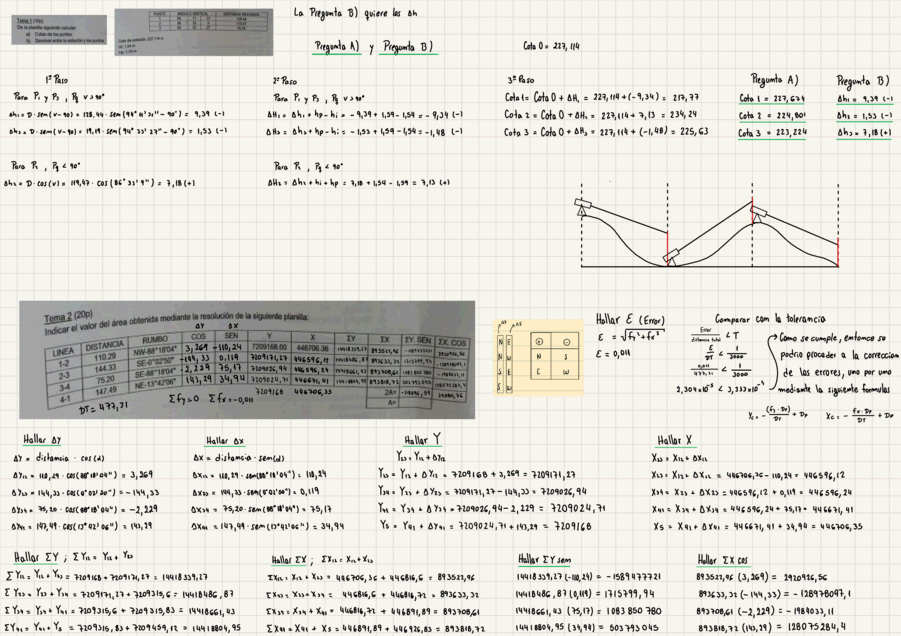 La Pregunta B) quiere los Δh
Tema 1 (10p)
De la planilla siguiente calcular:
a) Cotas de los puntos.
b) Desnivel entre la estación y los puntos
PUNTO ANGULO VERTICAL DISTANCIA INCLINADA
Cota de estación: 227,114 m
Pregunta A) y Pregunta B)
Cota 0 = 227,114
1º Paso
Para P₁ y P₃ , P₂ v > 90°
Δh₁ = D · sen(v-90) = 128,44 · sen(94° 11' 31'' - 90°) = 9,39 (-)
Δh₃ = D · sen(v-90) = 19,19 · sen(94° 33' 27'' - 90°) = 1,53 (-)
Para P₂ , P₂ < 90°
Δh₂ = D · cos(v) = 119,47 · cos(86° 33' 9'') = 7,18 (+)
2º Paso
Para P₁ y P₃ , P₂ v > 90°
ΔH₁ = Δh₁ + hp - hi = - 9,39 + 1,59 - 1,54 = - 9,34 (-)
ΔH₃ = Δh₃ + hp - hi = - 1,53 + 1,59 - 1,54 = -1,48 (-)
Para P₂ , P₂ < 90°
ΔH₂ = Δh₂ + hi + hp = 7,18 + 1,54 - 1,59 = 7,13 (+)
3º Paso
Cota 1 = Cota 0 + ΔH₁ = 227,114 + (-9,34) = 217,77
Cota 2 = Cota 0 + ΔH₂ = 227,114 + 7,13 = 234,24
Cota 3 = Cota 0 + ΔH₃ = 227,114 + (-1,48) = 225,63
Pregunta A)
Cota 1 = 227,674
Cota 2 = 224,801
Cota 3 = 223,224
Pregunta B)
Δh₁ = 9,39 (-)
Δh₂ = 1,53 (-)
Δh₃ = 7,18 (+)
Tema 2 (20p)
Indicar el valor del área obtenida mediante la resolución de la siguiente planilla:
ΔY ΔX
LINEA DISTANCIA RUMBO COS SEN Y X ΣY ΣX ΣY. SEN ΣX. COS
1-2 110.29 NW-88°18'04" 3,269 -110,24 7209168.00 446706.36 14418339,27 893523,96 -1589477721 2920926,56
2-3 144.33 SE-0°02'50" -144,33 0,119 7209171,27 446596,12
3-4 75.20 SE-88°18'04" -2,229 75,17 7209026,94 446596,24
4-1 147.49 NE-13°42'06" 143,29 34,94 7209024,71 446671,41
7209168 446706,35
DT = 477,31
Σfy=0 Σfx=-0,011
2A=
A=
ΔY ΔX
N E
N W
S E
S W
⊕ ⊖
N S
E W
Hallar E (Error)
E = √fy² + fx²
E = 0,011
Comparar com la tolerancia
Error / distancia total < T
E / DT < 1 / 3000
0,011 / 477,31 < 1 / 3000
2,304 x10⁻⁵ < 3,333 x10⁻⁴
Como se cumple, entonces se
podría proceder a la correccion
de los errores, uno por uno
mediante la siguiente formulas
Yc = -(fy · Dp) / DT + Dp Xc = -fx · Dp / DT + Dp
Hallar ΔY
ΔY = distancia · cos(α)
ΔY₁₂ = 110,29 · cos(88°18'04'') = 3,269
ΔY₂₃ = 144,33 · cos(0°02'50'') = -144,33
ΔY₃₄ = 75,20 · cos(88°18'04'') = -2,229
ΔY₄₁ = 147,49 · cos(13°42'06'') = 143,29
Hallar ΔX
ΔX = distancia · sem(α)
ΔX₁₂ = 110,29 · sem(88°18'04'') = 110,24
ΔX₂₃ = 144,33 · sem(0°02'50'') = 0,119
ΔX₃₄ = 75,20 · sem(88°18'04'') = 75,17
ΔX₄₁ = 147,49 · sem(13°42'06'') = 34,94
Hallar Y
Y₂₃ = Y₁₂ + ΔY₁₂
Y₂₃ = Y₁₂ + ΔY₁₂ = 7209168 + 3,269 = 7209171,27
Y₃₄ = Y₂₃ + ΔY₂₃ = 7209171,27 - 144,33 = 7209026,94
Y₄₁ = Y₃₄ + ΔY₃₄ = 7209026,94 - 2,229 = 7209024,71
Y₅ = Y₄₁ + ΔY₄₁ = 7209024,71 + 143,29 = 7209168
Hallar X
X₂₃ = X₁₂ + ΔX₁₂
X₂₃ = X₁₂ + ΔX₁₂ = 446706,36 - 110,24 = 446596,12
X₃₄ = X₂₃ + ΔX₂₃ = 446596,12 + 0,119 = 446596,24
X₄₁ = X₃₄ + ΔX₃₄ = 446596,24 + 75,17 = 446671,41
X₅ = X₄₁ + ΔX₄₁ = 446671,41 + 34,94 = 446706,35
Hallar ΣY ; ΣY₁₂ = Y₁₂ + Y₂₃
ΣY₁₂ = Y₁₂ + Y₂₃ = 7209168 + 7209171,27 = 14418339,27
ΣY₂₃ = Y₂₃ + Y₃₄ = 7209171,27 + 7209315,6 = 14418486,87
ΣY₃₄ = Y₃₄ + Y₄₁ = 7209315,6 + 7209315,83 = 14418661,43
ΣY₄₁ = Y₄₁ + Y₅ = 7209315,83 + 7209459,12 = 14418804,95
Hallar ΣX ; ΣX₁₂ = X₁₂ + X₂₃
ΣX₁₂ = X₁₂ + X₂₃ = 446706,36 + 446816,6 = 893522,96
ΣX₂₃ = X₂₃ + X₃₄ = 446816,6 + 446816,72 = 893633,32
ΣX₃₄ = X₃₄ + X₄₁ = 446816,72 + 446891,89 = 893708,61
ΣX₄₁ = X₄₁ + X₅ = 446891,89 + 446926,83 = 893818,72
Hallar ΣY sem
14418339,27 (-110,24) = -1589477721
14418486,87 (0,119) = 1715799,94
14418661,43 (75,17) = 1083850780
14418804,95 (34,94) = 503793045
Hallar ΣX cos
893522,96 (3,269) = 2920926,56
893633,32 (-144,33) = -128978097,1
893708,61 (-2,229) = -1984033,11
893818,72 (143,29) = 128075284,4